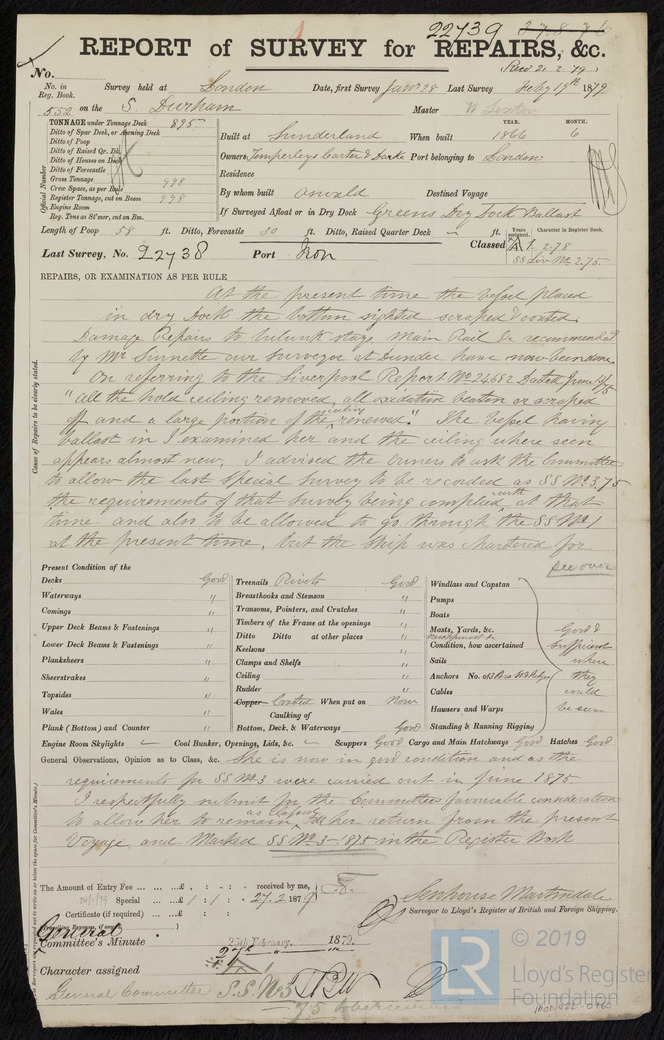 22739
REPORT of SURVEY for REPAIRS, &c.
Recd 21.2.79
No.
No. in Reg. Book. Survey held at London Date, first Survey Jany 28 Last Survey Feby 19th 1879
552 on the S Durham Master
TONNAGE under Tonnage Deck 895
Ditto of Spar Deck, or Awning Deck
Ditto of Poop
Ditto of Raised Qr. Dk.
Ditto of Houses on Deck
Ditto of Forecastle
Gross Tonnage 998
Crew Space, as per Rule
Register Tonnage, cut on Beam 998
Engine Room
Reg. Tons as St'mer, cut on Bm.
Official Number
YEAR. MONTH.
Built at Sunderland When built 1866 6
Owners Temperleys Carter & Darke Port belonging to London
Residence
By whom built Oswald Destined Voyage
If Surveyed Afloat or in Dry Dock Greens Dry Dock Ballast
Length of Poop 58 ft. Ditto, Forecastle 30 ft. Ditto, Raised Quarter Deck — ft.
Years assigned. Character in Register Book.
Last Survey, No. 22738 Port Iron Classed A 1. 2.78
SS Liv No 2.75
REPAIRS, OR EXAMINATION AS PER RULE
At the present time the vessel placed
in dry Dock the bottom sighted scraped & coated
Damage Repairs to bulwk stays Main Rail &c recommended
by Mr Sinnette our Surveyor at Dundee have now been done
On referring to the Liverpool Report No 24682 Dated June
"All the hold ceiling removed, all oxidation beaten or scraped
off and a large portion of the ceiling renewed." The vessel having
ballast in I examined her and the ceiling where seen
appears almost new, I advised the owners to ask the Committee
to allow the last Special Survey to be recorded as SS No 3,75
the requirements of that Survey being complied with at that
time and also to be allowed to go through the SS No 1
at the present time, but the Ship was chartered for
see over
Cause of Repairs to be clearly stated.
Present Condition of the
Decks Good
Waterways "
Comings "
Upper Deck Beams & Fastenings "
Lower Deck Beams & Fastenings "
Planksheers "
Sheerstrakes "
Topsides "
Wales "
Plank (Bottom) and Counter "
Treenails Rivets Good
Breasthooks and Stemson "
Transoms, Pointers, and Crutches "
Timbers of the Frame at the openings "
Ditto Ditto at other places "
Keelsons "
Clamps and Shelfs "
Ceiling "
Rudder "
Copper Coated When put on Now
Caulking of
Bottom, Deck, & Waterways Good
Windlass and Capstan
Pumps
Boats
Masts, Yards, &c.
Condition, how ascertained
Sails
Anchors No. of
Cables
Hawsers and Warps
Standing & Running Rigging
Good & sufficient where they could be seen
Engine Room Skylights — Coal Bunker, Openings, Lids, &c. — Scuppers Good Cargo and Main Hatchways Good Hatches Good
General Observations, Opinion as to Class, &c. She is now in good condition and as the
requirements for SS No 3 were carried out in June 1875
I respectfully submit for the Committees favourable consideration
to allow her to remain as classed till her return from the present
Voyage and Marked SS No 3 – 1875 in the Register Book
The Amount of Entry Fee ... ... ... £ : - : received by me,
Special ... ... £ 1 : 1 : - 27.2 1879
Certificate (if required) ... £ : :
(Travelling Expenses, if any)
Senhouse Martindale
Surveyor to Lloyd's Register of British and Foreign Shipping.
General
Committee's Minute 25th February, 1879.
27th " "
Character assigned
General Committee S.S. No 3
75
© 2019
LR Lloyd's Register Foundation
IRON422-0460